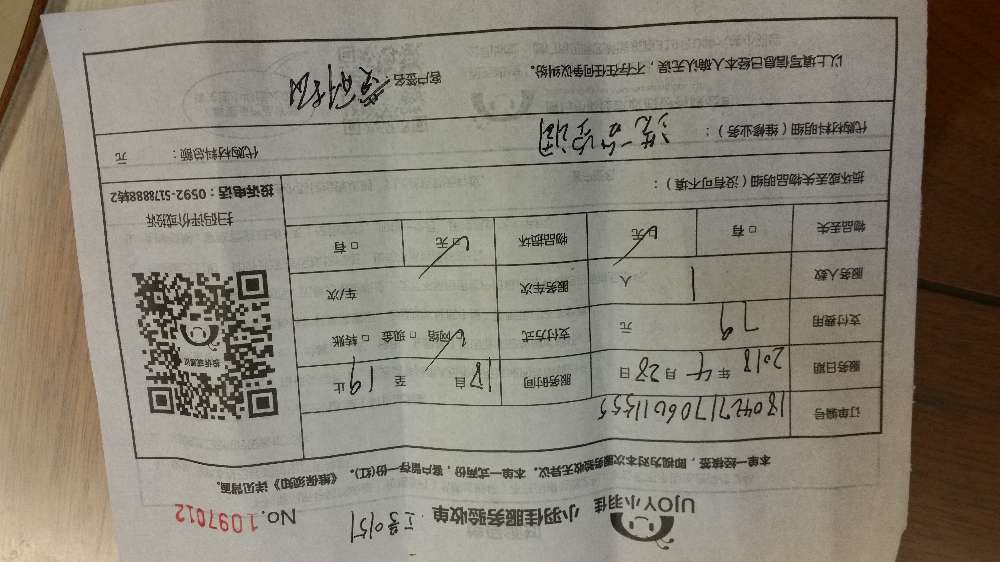 UJOY小羽佳 小羽佳服务验收单 No. 1097012
本单一经核签，即视为对本次服务验收无异议。本单一式两份，客户留存一份(红)。《维保须知》详见背面。
订单编号 1804271706011555
服务日期 2018 年 4 月 28 日 服务时间 18 自 至 19 止
支付费用 79 元 支付方式 网络 □ 现金 □ 转账
服务人数 1 人 服务车次 车/次
物品丢失 □ 有 □ 无 物品损坏 □ 无 □ 有
投诉或建议
扫码评价或投诉
投诉电话：0592-5178888转2
损坏或丢失物品明细（没有可不填）：
代购材料明细（维修业务）： 洗一台空调 代购材料总额： 元
以上填写信息已经本人确认无误，不存在任何争议纠纷。
客户签名：